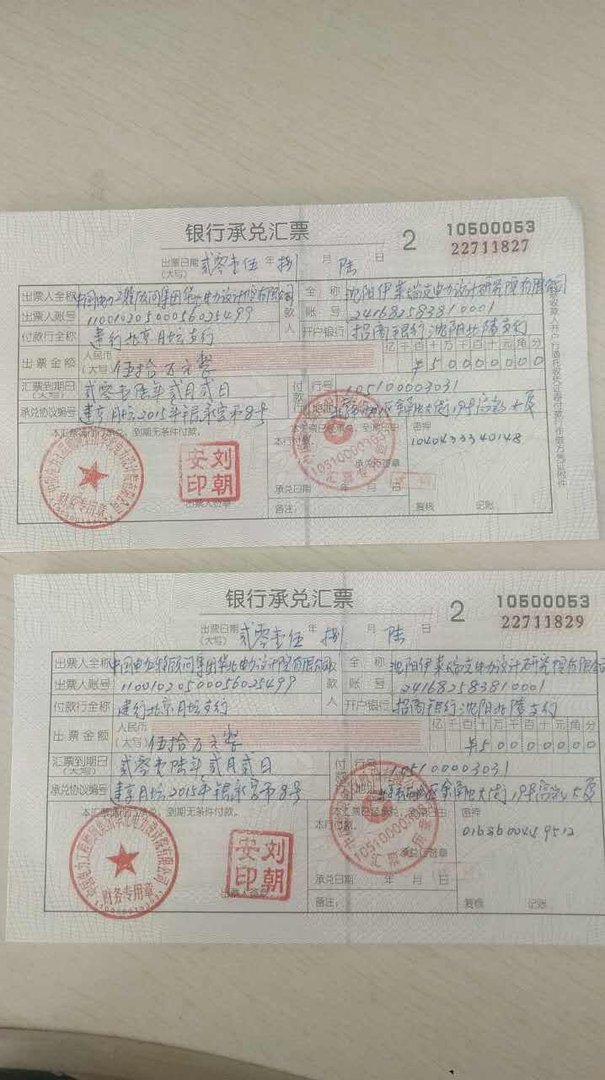 银行承兑汇票
2
10500053
22711827
出票日期（大写） 贰零壹伍 年 捌 月 陆 日
出票人全称 中国电力工程顾问集团华北电力设计院有限公司
全称 沈阳伊莱瑞克电力设计研究院有限公司
出票人账号 11001020500056025499
账号 241682583810001
付款行全称 建行北京月坛支行
开户银行 招商银行沈阳北陵支行
出票金额 人民币（大写） 伍拾万元整
亿 千 百 十 万 千 百 十 元 角 分
¥50000000
汇票到期日（大写） 贰零壹陆年贰月贰日
行号 105100003031
承兑协议编号 建京月坛2015年银承字第8号
地址
本汇票请你行承兑，到期无条件付款。
密押
1040433340148
刘朝安印
财务专用章
出票人签章
承兑行签章
承兑日期 年 月 日
备注：
复核 记账
银行承兑汇票
2
10500053
22711829
出票日期（大写） 贰零壹伍 年 捌 月 陆 日
出票人全称 中国电力工程顾问集团华北电力设计院有限公司
全称 沈阳伊莱瑞克电力设计研究院有限公司
出票人账号 11001020500056025499
账号 241682583810001
付款行全称 建行北京月坛支行
开户银行 招商银行沈阳北陵支行
出票金额 人民币（大写） 伍拾万元整
亿 千 百 十 万 千 百 十 元 角 分
¥50000000
汇票到期日（大写） 贰零壹陆年贰月贰日
行号 105100003031
承兑协议编号 建京月坛2015年银承字第8号
地址
本汇票请你行承兑，到期无条件付款。
密押
0163600489512
刘朝安印
财务专用章
出票人签章
承兑行签章
承兑日期 年 月 日
备注：
复核 记账